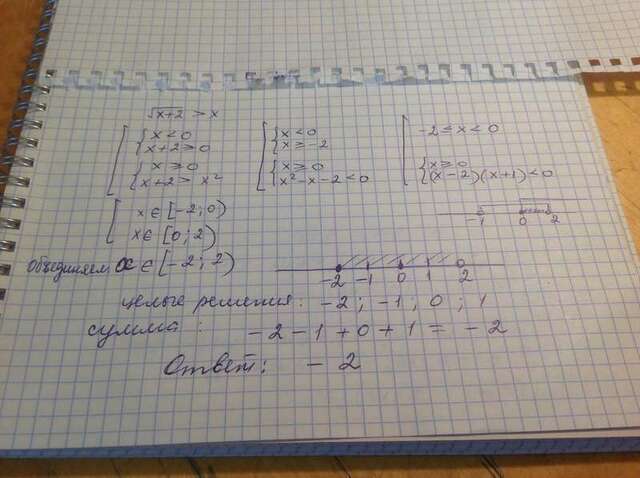 √x+2 > x
[ { x < 0 { x < 0 [ -2 ≤ x < 0
{ x+2 ≥ 0 { x ≥ -2
{ x ≥ 0 { x ≥ 0 { x ≥ 0
{ x+2 > x² { x²-x-2 < 0 { (x-2)(x+1) < 0
[ x ∈ [-2; 0) -1 0 2
x ∈ [0; 2)
Объединяем x ∈ [-2; 2) -2 -1 0 1 2
целые решения: -2; -1; 0; 1
сумма: -2-1+0+1 = -2
Ответ: -2